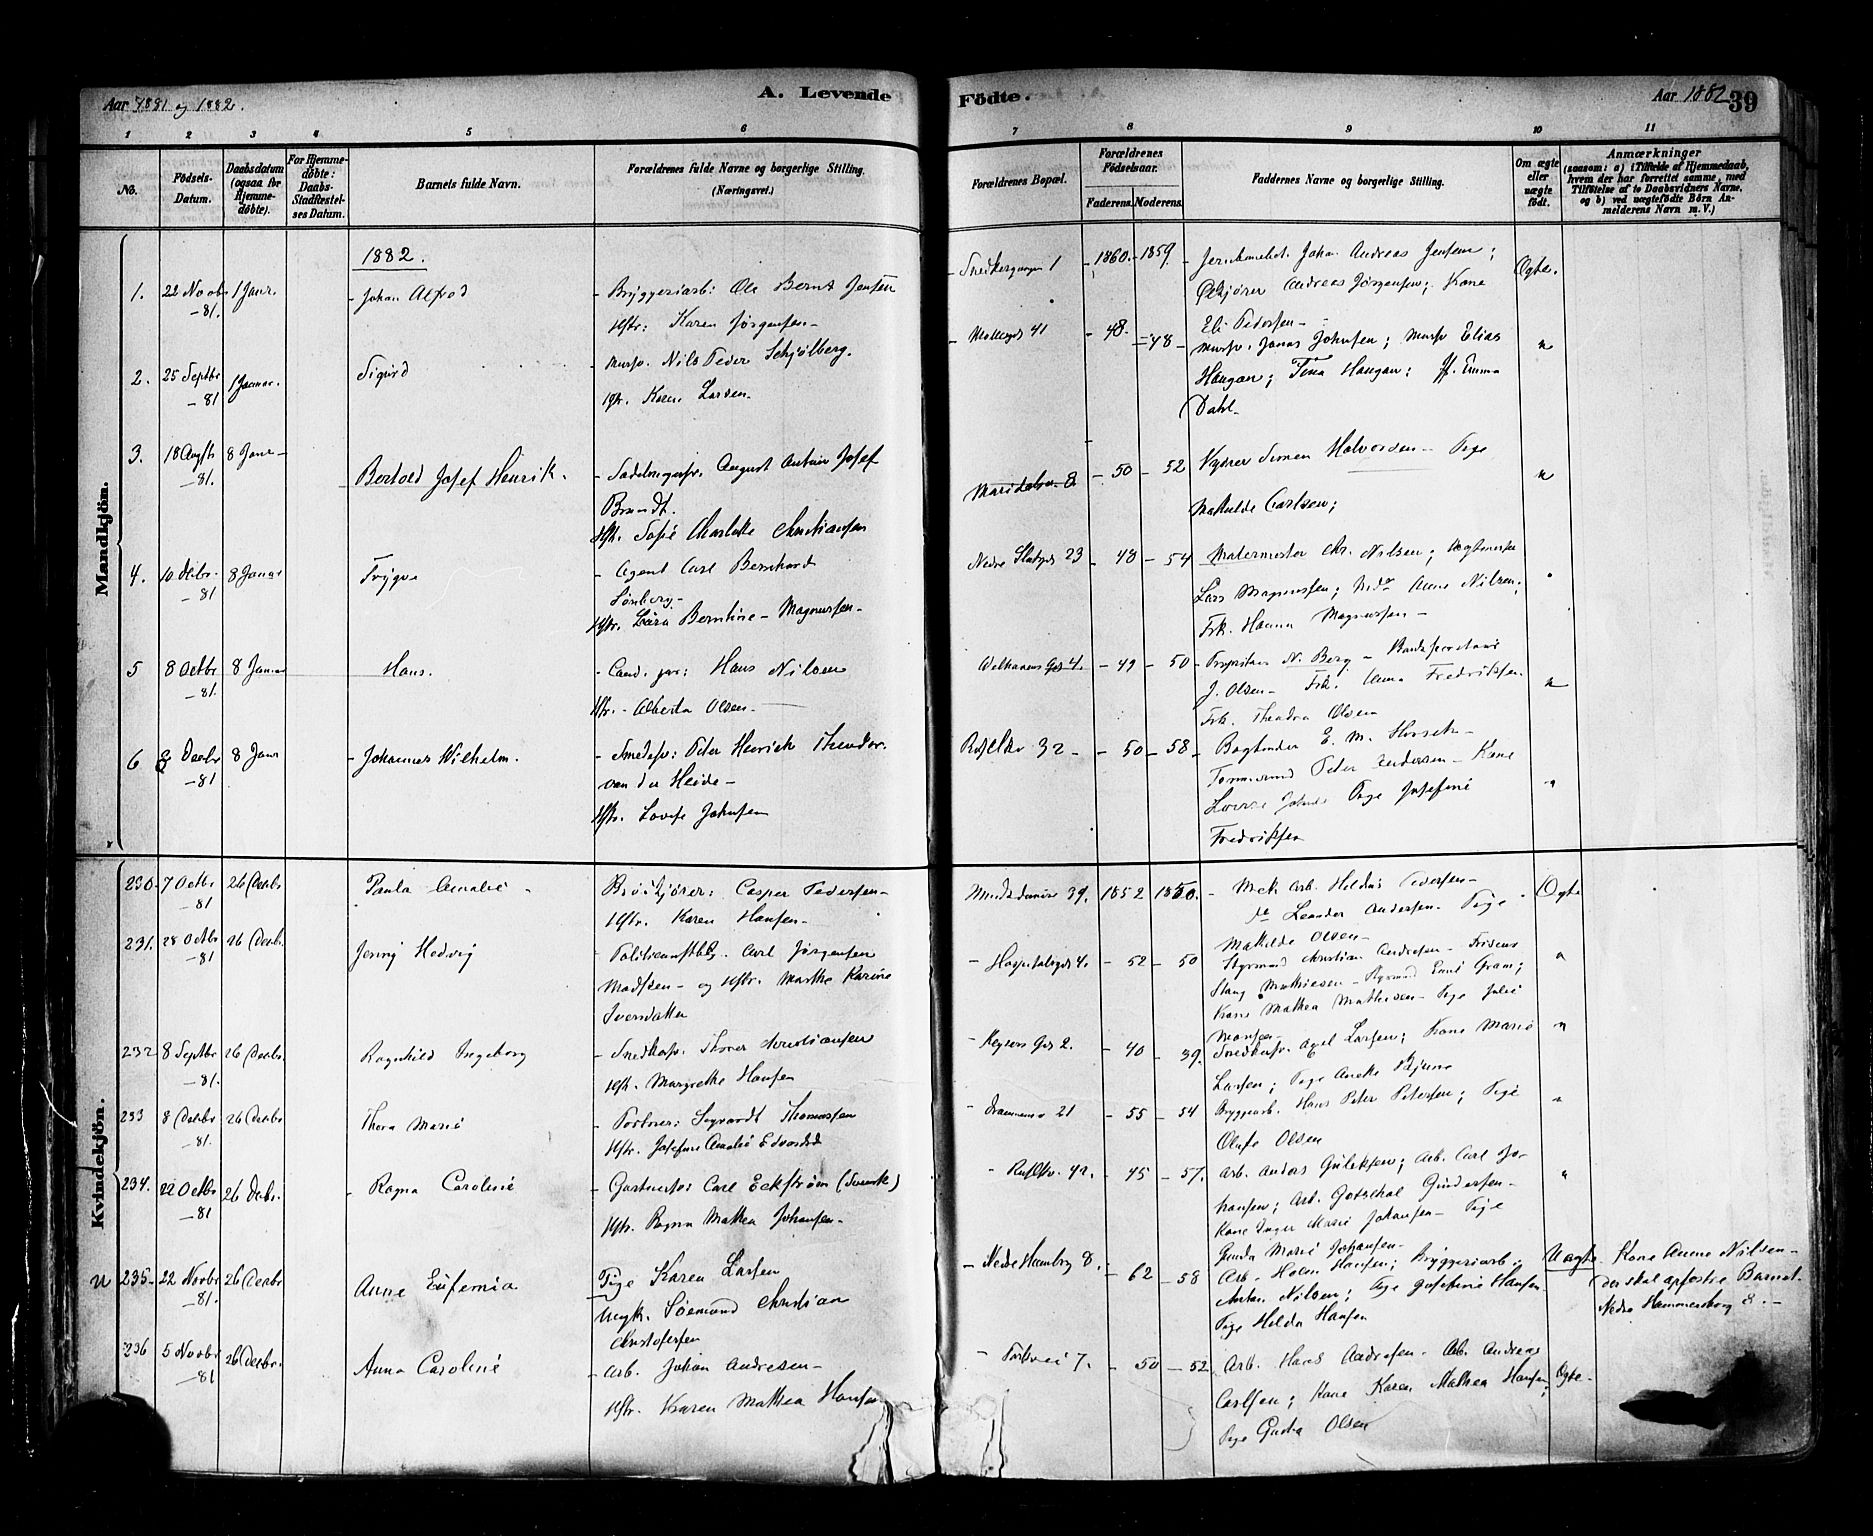 Aar 1881 og 1882.
A. Levende
Födte.
Aar 1882
39
1 2 3 4 5 6 7 8 9 10 11
No.
Födsels-Datum.
Daabsdatum (ogsaa for Hjemme-döbte).
For Hjemme-döbte: Daabs-Stadfæstel-ses Datum.
Barnets fulde Navn.
Forældrenes fulde Navne og borgerlige Stilling.
(Næringsvei.)
Forældrenes Bopæl.
Forældrenes Födselsaar.
Faderens. Moderens.
Faddernes Navne og borgerlige Stilling.
Om ægte eller uægte födt.
Anmærkninger
(saasom: a) i Tilfælde af Hjemmedaab,
hvem der har forrettet samme, med
Tilföielse af to Daabsvidners Navne,
og b) ved uægtefödte Börn An-
melderens Navn m. V.)
Mandkjön.
1882.
1. 22 Novb -81. 1 Janr. Johan Alfred
Bryggeriarb: Ole Bernt Jensen
Hstr: Karen Jørgensen
1 1860. 1859.
Johan Andreas Jensen;
Andreas Jørgensen; Kone
Eli Pedersen
Ægte.
2. 25 Septbr -81 1 Januar. Sigurd
Mursv. Nils Peder Schjølberg.
Hstr. Karen Larsen
41 48. 48
Mursv. Jonas Johnsen; Mursv Elias
Haugan; Tina Haugan; Emma
Dahl
3. 18 Augst -81. 8 Janr Bertold Josef Henrik.
August Anton Josef
Brandt.
Hstr. Sofie Charlotte Christiansen
Maridalsv. 8 50 52
Simen Halvorsen Pige
Mathilde Carlsen;
4. 10 Decbr. -81 8 Januar Trygve
Agent Carl Bernhard
Lønborg
Hstr. Lara Bernhine Magnussen
Nedre Slotsgd 23 48 54
Malermester Chr. Nilsen;
Lars Magnussen; Anne Nilsen;
Frk. Hanna Magnussen
5 8 Octbr -81. 8 Januar Hans.
Cand. jur: Hans Nilsen
Hstr. Alberta Olsen
Welhavens Gd 4. 49 50
N. Berg
J. Olsen Frk. Anna Fredriksen
Frk. Thandra Olsen
6 Decbr -81 8 Janr Johannes Wilhelm.
Smedsv: Peter Henrich Theodor
van der Heide
Hstr. Lovise Johnsen
32 50 58
Bogbinder E. M. Hirsch
Peter Andersen Kone
Pige Josefine
Fredriksen
Kvindekjön.
230. 7 Octbr -81 26 Decbr Paula Amalie
Casper Pedersen
Hstr. Karen Hansen
39. 1852 1850.
Mek. Arb. Pedersen
do Leander Andersen Pige
Mathilde Olsen
Ægte
231. 28 Octbr -81 26 Decbr. Jenny Hedvig
Carl Jørgensen
Madsen og Hstr. Marthe Karine
Iversdatter
Hospitalsgd 4. 52 50
Styrmand Christian Andresen
Stang Mathiesen Gram;
Kone Mathea Mathisen Pige Julie
Hansen
232 8 Septbr -81. 26 Decbr. Ragnhild Ingeborg
Snedkersv. Thorer Christiansen
Hstr. Margrethe Hansen
Keysers Gd 2. 40 39.
Snedkersv. Axel Larsen; Kone Marie
Larsen; Pige Anette
233 8 Decbr -81. 26 Decbr Thora Marie
Portner: Sigvardt Thomassen
Hstr. Josefine Amalie Edvardsd
Drammensv 21 55 54
Bryggeriarb. Hans Peter Petersen; Pige
Olufe Olsen
234. 22 Octbr -81 26 Decbr. Ragna Caroline
Gartner Carl Eckstrøm (Svensk)
Hstr. Ragna Mathea Johansen
42. 45 57.
Arb. Anders Gulliksen; Arb. Carl Jo-
hansen; Arb. Gotschal Gundersen
Kone Inger Marie Johansen Pige
Gunda Marie Johansen
u 235 22 Novbr -81. 26 Decbr Anne Eufemia
Pige Karen Larsen
Ungk. Sømand Christian
Christofersen
Nedre Hambrg 8. 62 58
Arb. Hansen; Bryggeriarb.
Anton Nilsen; Pige Josefine Hansen
Pige Hilda Hansen
Uægte
Kone Anne Nilsen
der skal opfostre Barnet.
Nedre Hammersborg 8.
236 5 Novbr -81 26 Decbr. Anna Caroline
Arb. Johan Andresen
Hstr. Karen Mathea Hansen
7. 50 52
Arb. Hans Andresen Arb. Andreas
Carlsen; Kone Karen Mathea Hansen,
Pige Gusta Olsen
Ægte